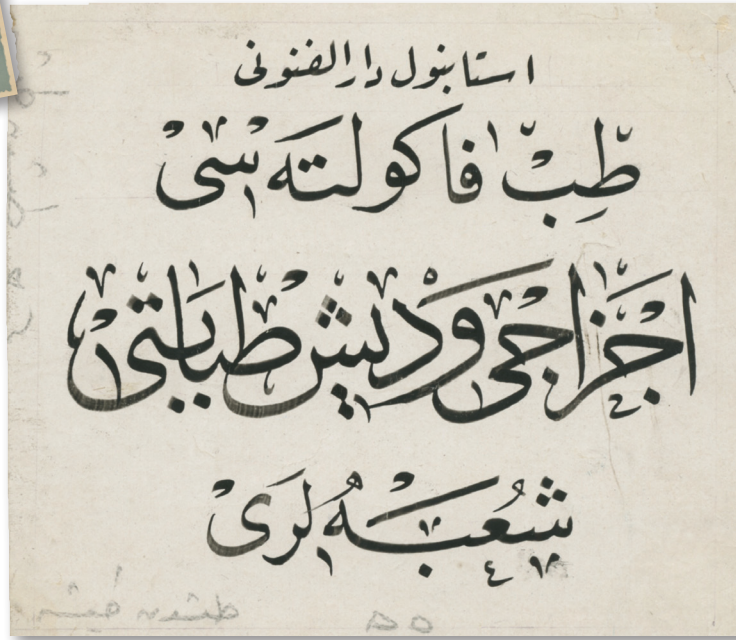 استانبول دار الفنونی
طِبّ فاكولته سی
اجزاجی و دیش طبابتی
شعبه لری